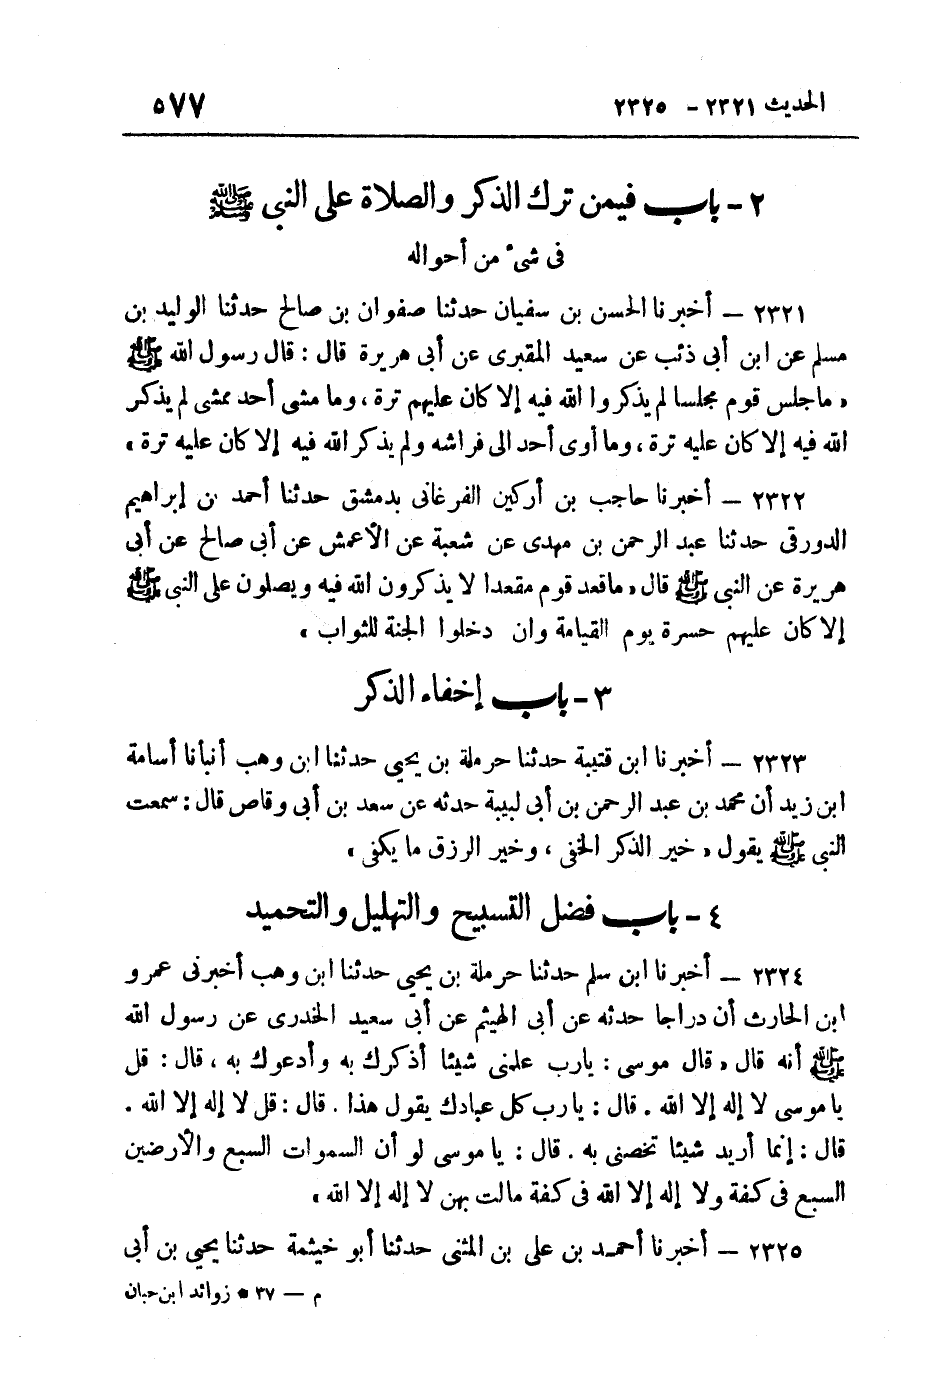 الحديث ٢٣٢١ - ٢٣٢٥ ٥٧٧
٢ - باب فيمن ترك الذكر والصلاة على النبى ﷺ
فى شىء من أحواله
٢٣٢١ — أخبرنا الحسن بن سفيان حدثنا صفوان بن صالح حدثنا الوليد بن
مسلم عن ابن أبى ذئب عن سعيد المقبرى عن أبى هريرة قال : قال رسول الله ﷺ
« ماجلس قوم مجلسا لم يذكروا الله فيه إلا كان عليهم ترة ، وما مشى أحد ممشى لم يذكر
الله فيه إلا كان عليه ترة ، وما أوى أحد الى فراشه ولم يذكر الله فيه إلا كان عليه ترة »
٢٣٢٢ — أخبرنا حاجب بن أركين الفرغانى بدمشق حدثنا أحمد بن إبراهيم
الدورقى حدثنا عبد الرحمن بن مهدى عن شعبة عن الأعمش عن أبى صالح عن أبى
هريرة عن النبى ﷺ قال « ماقعد قوم مقعدا لا يذكرون الله فيه ويصلون على النبى ﷺ
إلا كان عليهم حسرة يوم القيامة وان دخلوا الجنة للثواب »
٣ - باب إخفاء الذكر
٢٣٢٣ — أخبرنا ابن قتيبة حدثنا حرملة بن يحيى حدثنا ابن وهب أنبأنا أسامة
ابن زيد أن محمد بن عبد الرحمن بن أبى لبيبة حدثه عن سعد بن أبى وقاص قال : سمعت
النبى ﷺ يقول « خير الذكر الخفى ، وخير الرزق ما يكفى »
٤ - باب فضل التسبيح والتهليل والتحميد
٢٣٢٤ — أخبرنا ابن سلم حدثنا حرملة بن يحيى حدثنا ابن وهب أخبرنى عمرو
ابن الحارث أن دراجا حدثه عن أبى الهيثم عن أبى سعيد الخدرى عن رسول الله
ﷺ أنه قال « قال موسى : يارب علمنى شيئا أذكرك به وأدعوك به ، قال : قل
ياموسى لا إله إلا الله . قال : يارب كل عبادك يقول هذا . قال : قل لا إله إلا الله .
قال : إنما أريد شيئا تخصنى به . قال : ياموسى لو أن السموات السبع والأرضين
السبع فى كفة ولا إله إلا الله فى كفة مالت بهن لا إله إلا الله »
٢٣٢٥ — أخبرنا أحمد بن على بن المثنى حدثنا أبو خيثمة حدثنا يحيى بن أبى
م — ٣٧ * زوائد ابن حبان